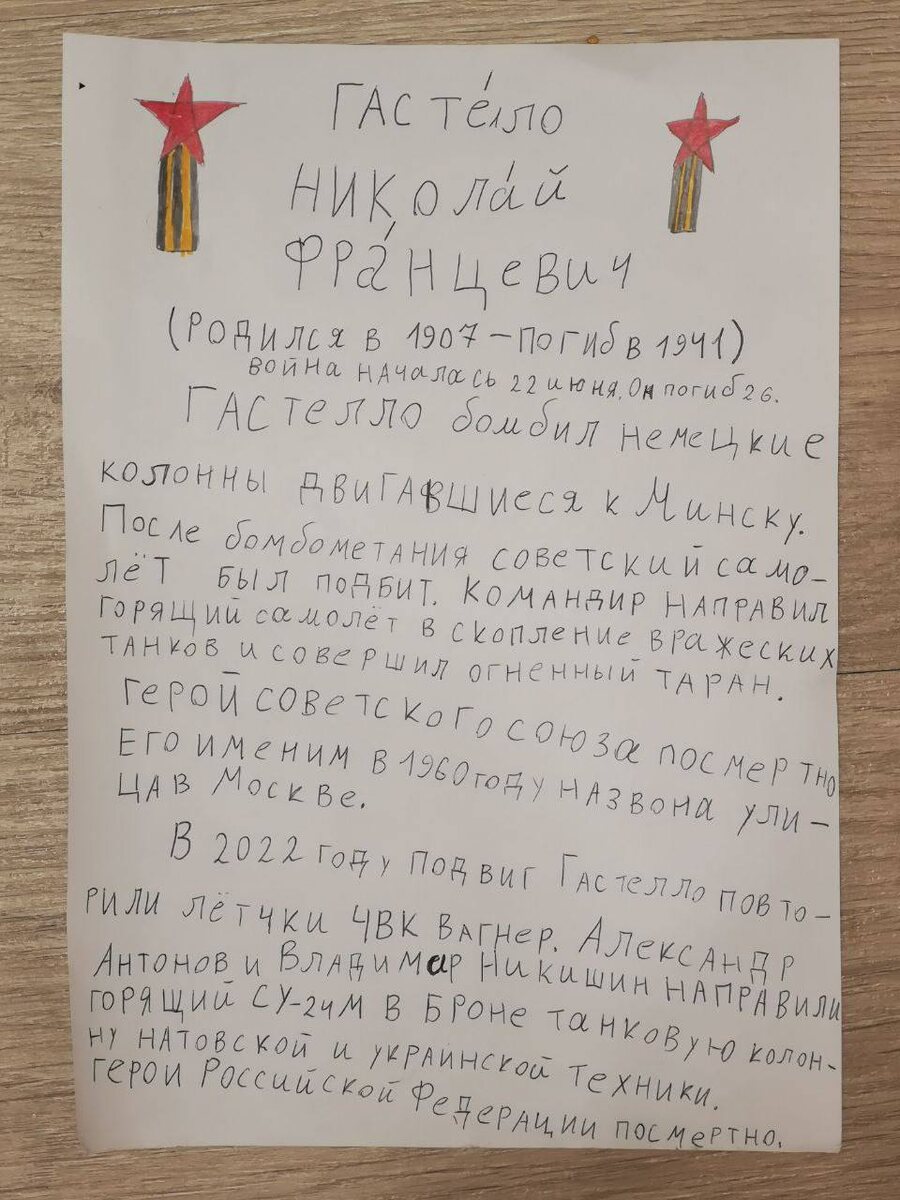 ГАСТЕ́ЛЛО
НИКОЛА́Й
ФРА́НЦЕВИЧ
(РОДИЛСЯ В 1907 - ПОГИБ В 1941)
ВОЙНА НАЧАЛАСЬ 22 ИЮНЯ. ОН ПОГИБ 26.
ГАСТЕЛЛО бомбил немецкие
колонны двигавшиеся к Минску.
После бомбометания советский само-
лёт был подбит. Командир направил
горящий самолёт в скопление вражеских
танков и совершил огненный таран.
Герой Советского союза посмертно
Его именим в 1960 году назвона ули-
ца в Москве.
В 2022 году подвиг Гастелло повто-
рили лётчки ЧВК Вагнер. Александр
Антонов и Владимар Никишин направили
горящий СУ-24М в броне танковую колон-
ну натовской и украинской техники.
Герои Российской Федерации посмертно.